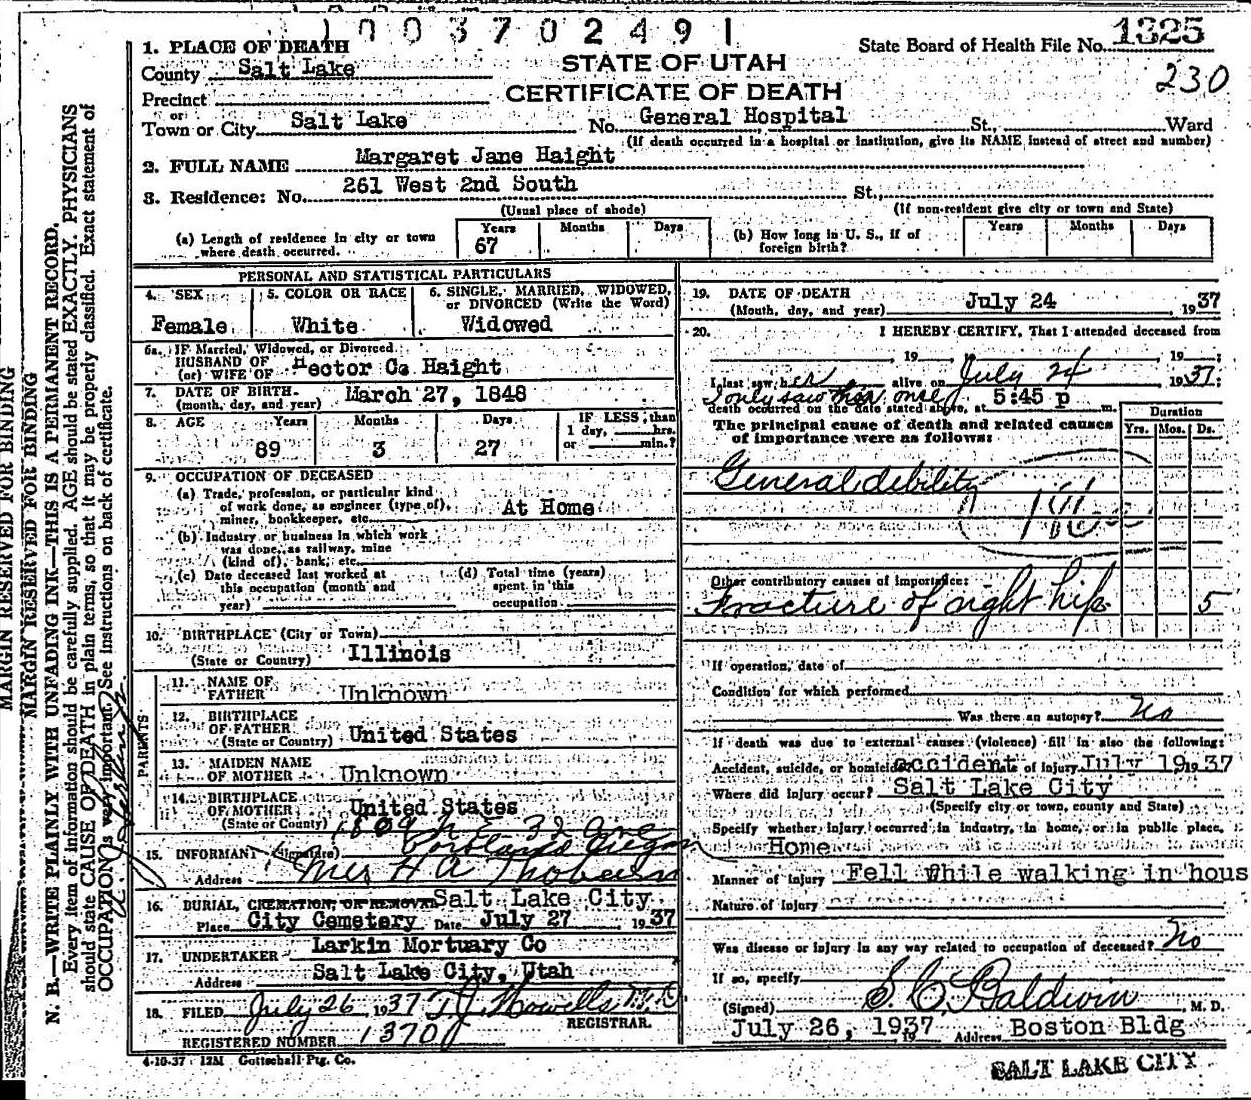 1003702491
State Board of Health File No. 1325
230
STATE OF UTAH
CERTIFICATE OF DEATH
1. PLACE OF DEATH
County Salt Lake
Precinct
or
Town or City Salt Lake No. General Hospital St., Ward
(If death occurred in a hospital or institution, give its NAME instead of street and number)
2. FULL NAME Margaret Jane Haight
3. Residence: No. 261 West 2nd South St.,
(Usual place of abode) (If non-resident give city or town and State)
(a) Length of residence in city or town where death occurred. Years 67 Months Days
(b) How long in U. S., if of foreign birth? Years Months Days
PERSONAL AND STATISTICAL PARTICULARS
4. SEX Female
5. COLOR OR RACE White
6. SINGLE, MARRIED, WIDOWED, or DIVORCED (Write the Word) Widowed
6a. IF Married, Widowed, or Divorced
HUSBAND OF
(or) WIFE OF Hector C. Haight
7. DATE OF BIRTH
(month, day, and year) March 27, 1848
8. AGE Years 89 Months 3 Days 27
IF LESS than
1 day, hrs.
or min.?
9. OCCUPATION OF DECEASED
(a) Trade, profession, or particular kind
of work done, as engineer (type of), At Home
miner, bookkeeper, etc.
(b) Industry or business in which work
was done, as railway, mine
(kind of), bank, etc.
(c) Date deceased last worked at
this occupation (month and
year)
(d) Total time (years)
spent in this
occupation
10. BIRTHPLACE (City or Town)
(State or Country) Illinois
PARENTS
11. NAME OF
FATHER Unknown
12. BIRTHPLACE
OF FATHER
(State or Country) United States
13. MAIDEN NAME
OF MOTHER Unknown
14. BIRTHPLACE
OF MOTHER United States
(State or Country)
1809 N E 32 Ave
Portland Oregon
15. INFORMANT (Signature)
Address Mrs H A
16. BURIAL, CREMATION, OR REMOVAL Salt Lake City
Place City Cemetery Date July 27 1937
17. UNDERTAKER Larkin Mortuary Co
Address Salt Lake City, Utah
18. FILED July 26 1937 T J Howells M.D.
REGISTRAR.
REGISTERED NUMBER 1370
4-10-37 12M Gottschall Ptg. Co.
19. DATE OF DEATH
(Month, day, and year) July 24 1937
20. I HEREBY CERTIFY, That I attended deceased from
, 19 , , 19 ;
I last saw her alive on July 24 1937;
I only saw her once
death occurred on the date stated above, at 5:45 p m.
The principal cause of death and related causes
of importance were as follows:
Duration
Yrs. Mos. Ds.
General debility
Other contributory causes of importance:
Fracture of right hip 5
If operation, date of
Condition for which performed
Was there an autopsy? No
If death was due to external causes (violence) fill in also the following:
Accident, suicide, or homicide accident Date of injury July 19 1937
Where did injury occur? Salt Lake City
(Specify city or town, county and State)
Specify whether injury occurred in industry, in home, or in public place.
Home
Manner of Injury Fell while walking in hous
Nature of Injury
Was disease or injury in any way related to occupation of deceased? No
If so, specify
(Signed) S. C. Baldwin M. D.
July 26, 1937 19 Address Boston Bldg
SALT LAKE CITY
MARGIN RESERVED FOR BINDING
MARGIN RESERVED FOR BINDING
N. B.—WRITE PLAINLY WITH UNFADING INK—THIS IS A PERMANENT RECORD.
Every item of information should be carefully supplied. AGE should be stated EXACTLY. PHYSICIANS
should state CAUSE OF DEATH in plain terms, so that it may be properly classified. Exact statement of
OCCUPATION is very important. See instructions on back of certificate.